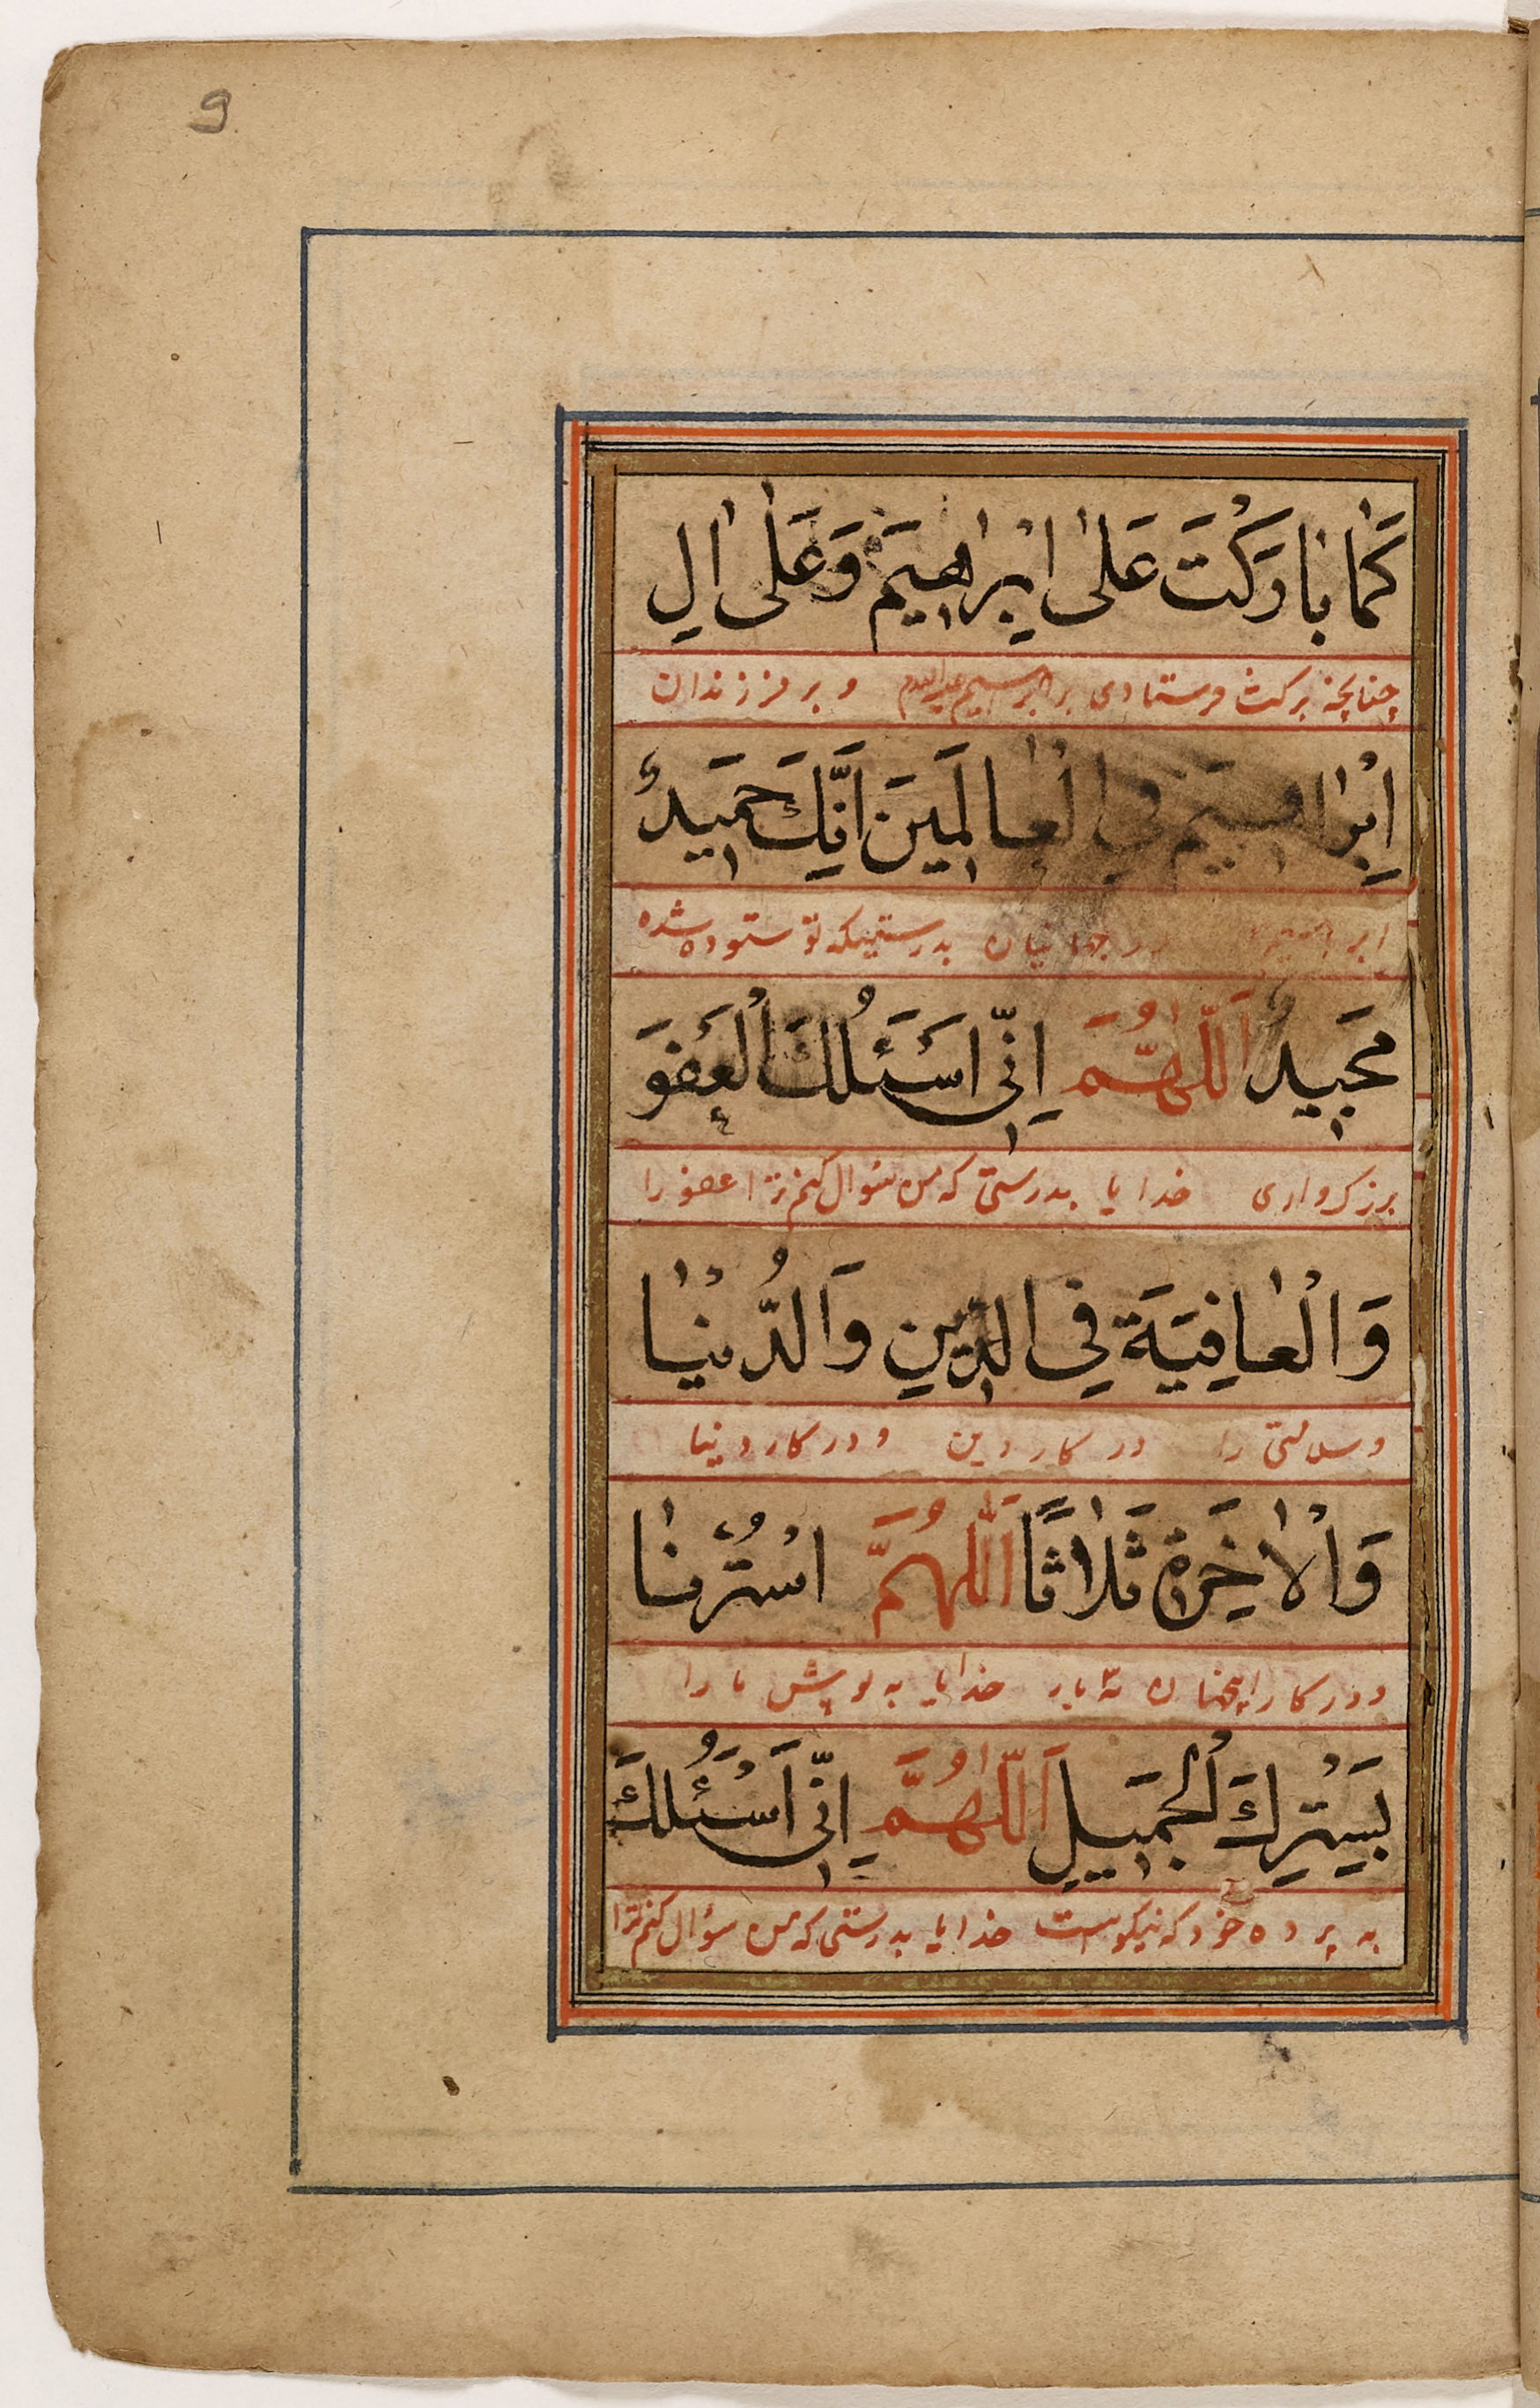 9
كَمٰا بٰارَكْتَ عَلٰى اِبْرٰاهٖيمَ وَعَلٰى اٰلِ
چنانچه بركت فرستادى بر ابرهيم عليه السلام و بر فرزندان
اِبْرٰاهٖيمَ فِي الْعٰالَمٖينَ اِنَّكَ حَمٖيدٌ
ابراهيم در جهانيان بدرستيكه تو ستوده شده
مَجٖيدٌ اَللّٰهُمَّ اِنّٖى اَسْئَلُكَ الْعَفْوَ
بزركوارى خدايا بدرستى كه من سؤال كنم ترا عفو را
وَالْعٰافِيَةَ فِى الدّٖينِ وَالدُّنْيٰا
و سلامتى را در كار دين و در كار دنيا
وَالْاٰخِرَةِ ثَلٰاثًا اَللّٰهُمَّ اسْتُرْنٰا
و در كار آنجهان سه بار خدايا به پوش ما را
بِسِتْرِكَ الْجَمٖيلِ اَللّٰهُمَّ اِنّٖى اَسْئَلُكَ
به پرده خود كه نيكوست خدايا بدرستى كه من سؤال كنم ترا